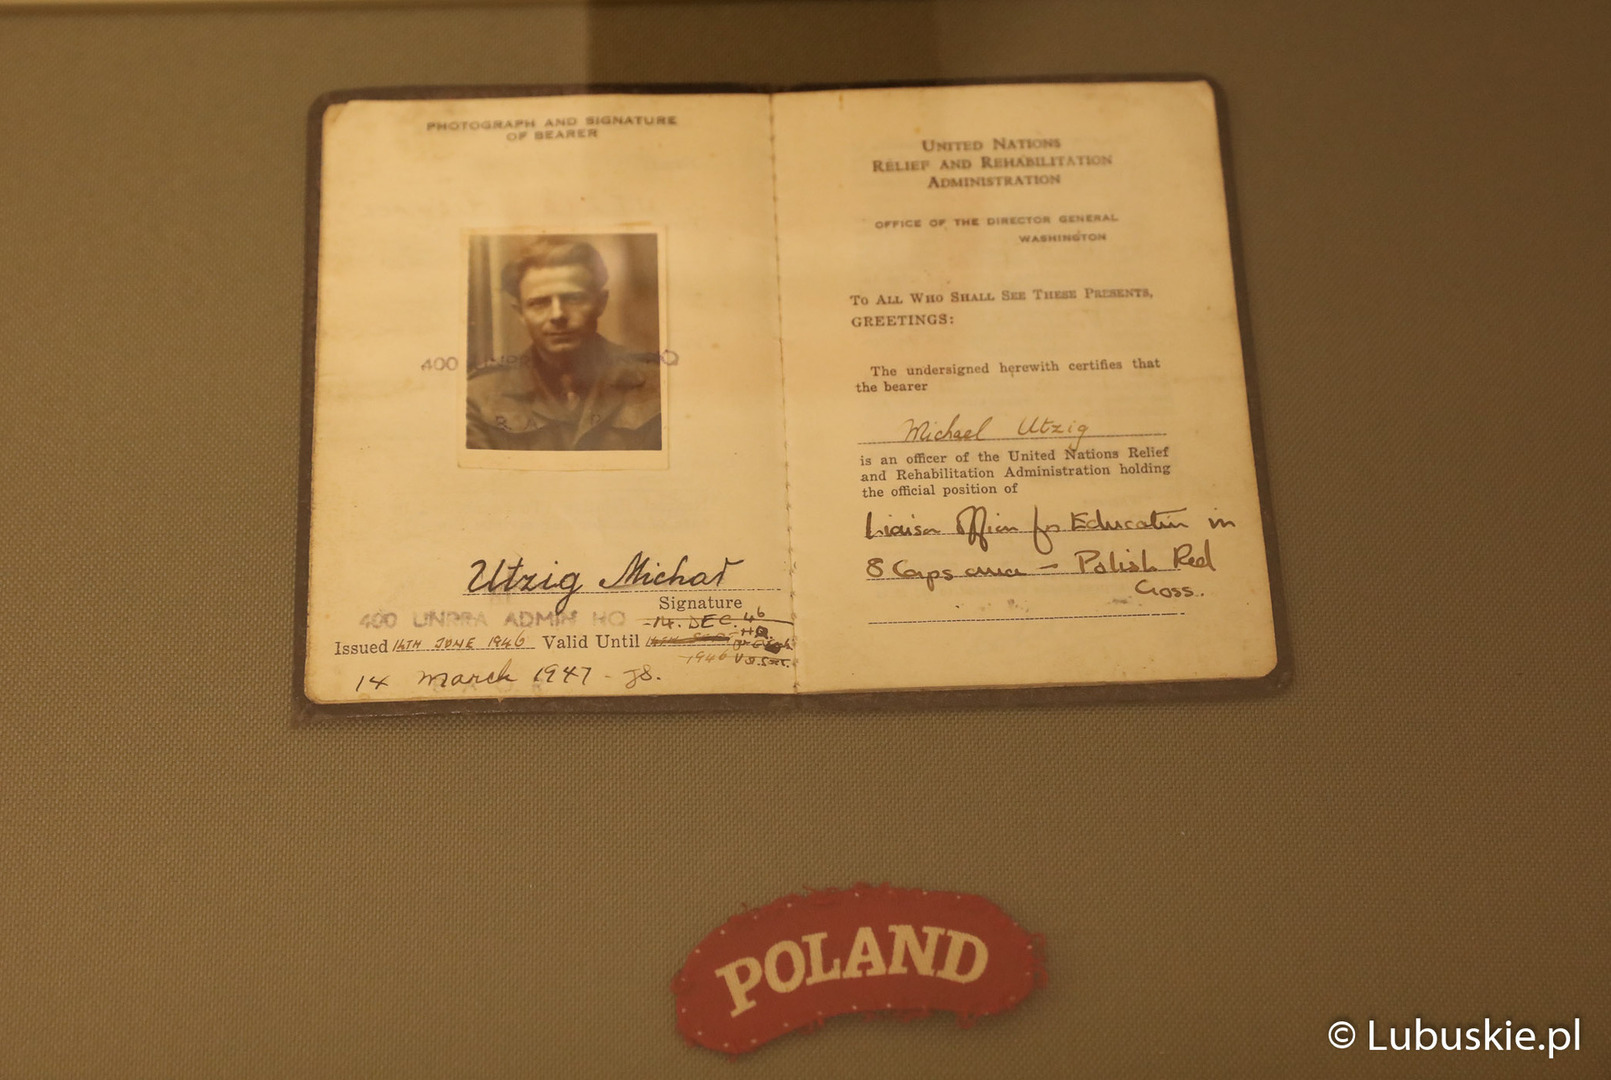 PHOTOGRAPH AND SIGNATURE
OF BEARER
400 UNRRA HQ
Utzig Michał
Signature
400 UNRRA ADMIN HQ
14. DEC. 46
Issued 14TH JUNE 1946 Valid Until
1946
14 March 1947
UNITED NATIONS
RELIEF AND REHABILITATION
ADMINISTRATION
OFFICE OF THE DIRECTOR GENERAL
WASHINGTON
TO ALL WHO SHALL SEE THESE PRESENTS,
GREETINGS:
The undersigned herewith certifies that
the bearer
Michael Utzig
is an officer of the United Nations Relief
and Rehabilitation Administration holding
the official position of
Liaison Officer for Education in
8 Corps area – Polish Red
Cross.
POLAND
© Lubuskie.pl